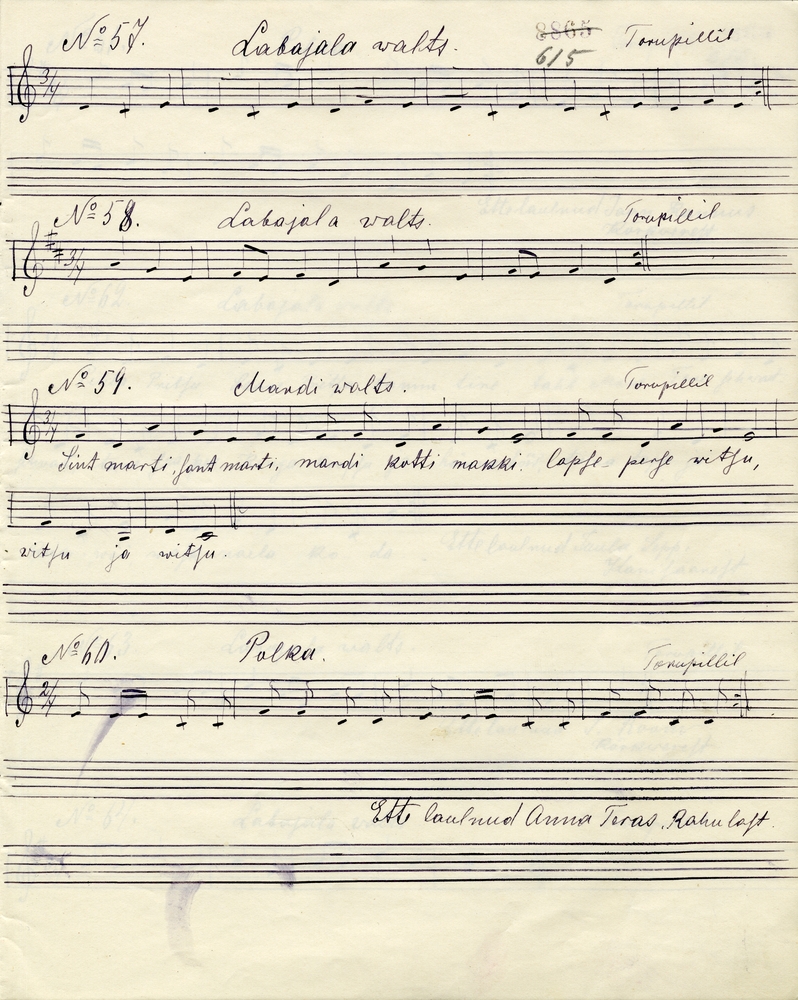 № 57. Labajala walts. 8865 Torupillil
615
3/4
№ 58. Labajala walts. Torupillil
3/4
№ 59. Mardi walts. Torupillil
3/4
Sint marti, sant marti, mardi kotti makki. Lapse perse witsu,
witsu ja witsu.
№ 60. Polka. Torupillil
2/4
Ette laulnud Anna Teras, Rahulast.